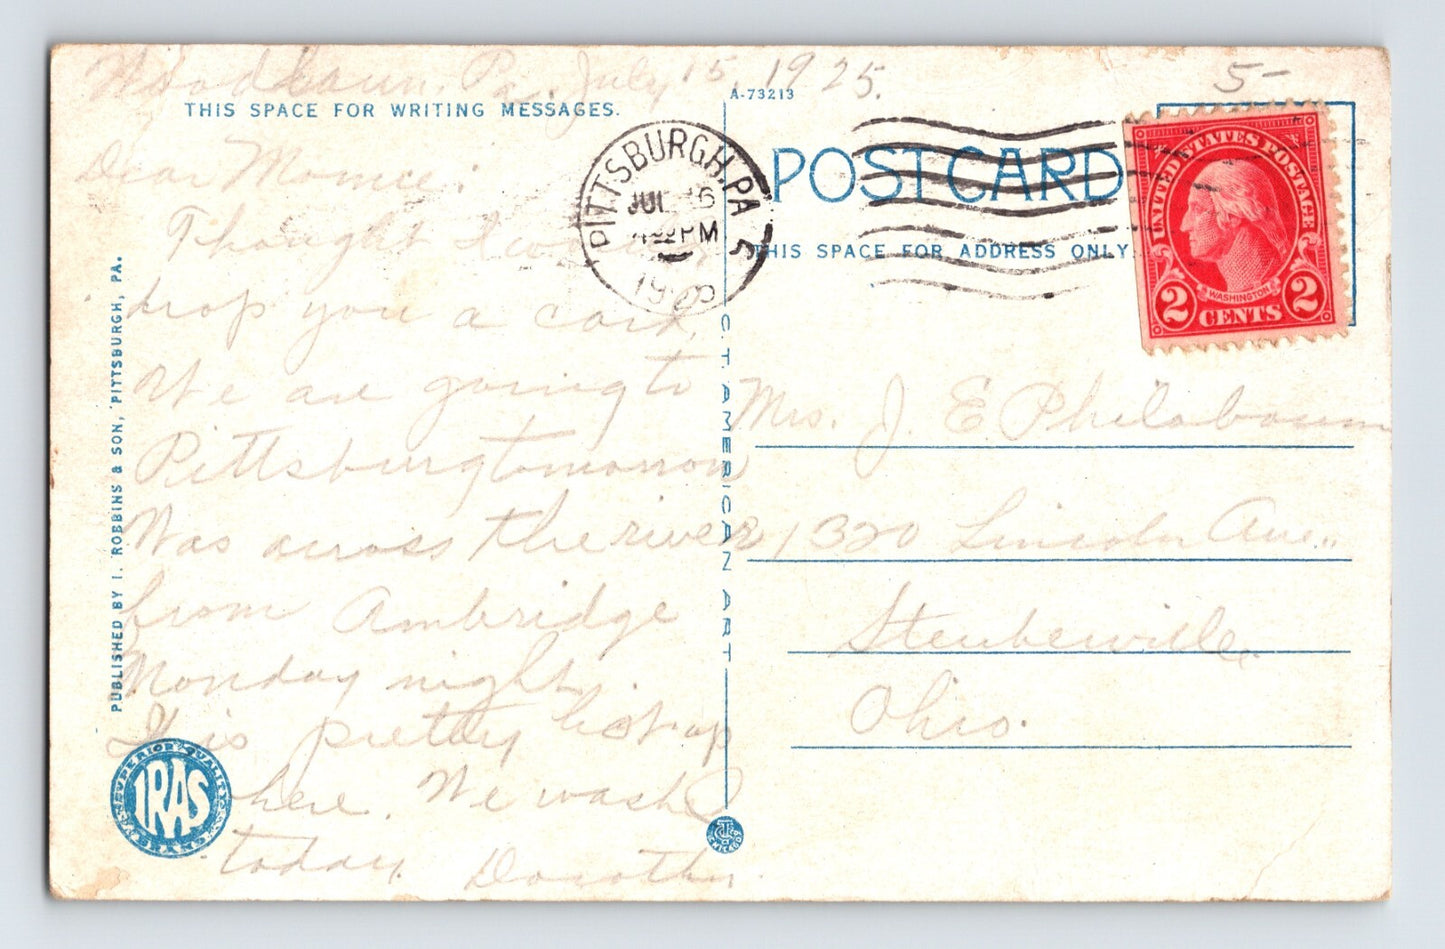 Woodlawn, Pa. July 15, 1925.
5-
THIS SPACE FOR WRITING MESSAGES.
A-73213
Dear
Thought I
drop you a card,
We are going to
Pittsburg tomorrow
Was across the river
from Ambridge
Monday night.
It is pretty hot up
here. We washed
today. Dorothy.
PUBLISHED BY I. ROBBINS & SON, PITTSBURGH, PA.
SUPERIOR QUALITY
IRAS
PITTSBURGH, PA
JUL 16
PM
19
POST CARD
THIS SPACE FOR ADDRESS ONLY.
UNITED STATES POSTAGE
WASHINGTON
2 CENTS 2
C. T. AMERICAN ART
CHICAGO
Mrs. J. E Philabaum
1320 Lincoln Ave.
Steubenville
Ohio.